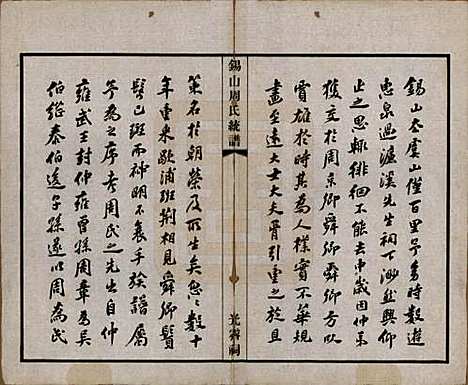 錫山去虞山僅百里予弱時數遊
惠泉過濂溪先生祠下渺然興仰
止之思輒徘徊不能去中歲因仲
捘交於周京卿舜卿舜卿方以
賈雄於時其為人樸實不華規
畫至遠大士大夫胥引重之於且
錫山周氏統譜
光霽祠
策名於朝榮及所生矣忽忽數十
年重來歇浦班荊相見舜卿鬢
髮已斑而神明不衰手族譜屬
予為之序考周氏之先生自仲
雍武王封仲雍曾孫周章為吳
伯繼泰伯後子孫遂以周為氏